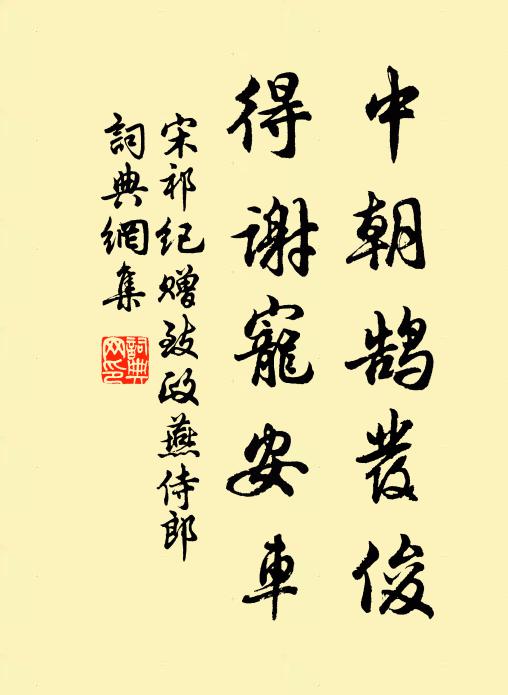 中朝鹄發俊
得謝寵安車
宋祁纪赠致政燕侍郎
詞典網集
詞典网印